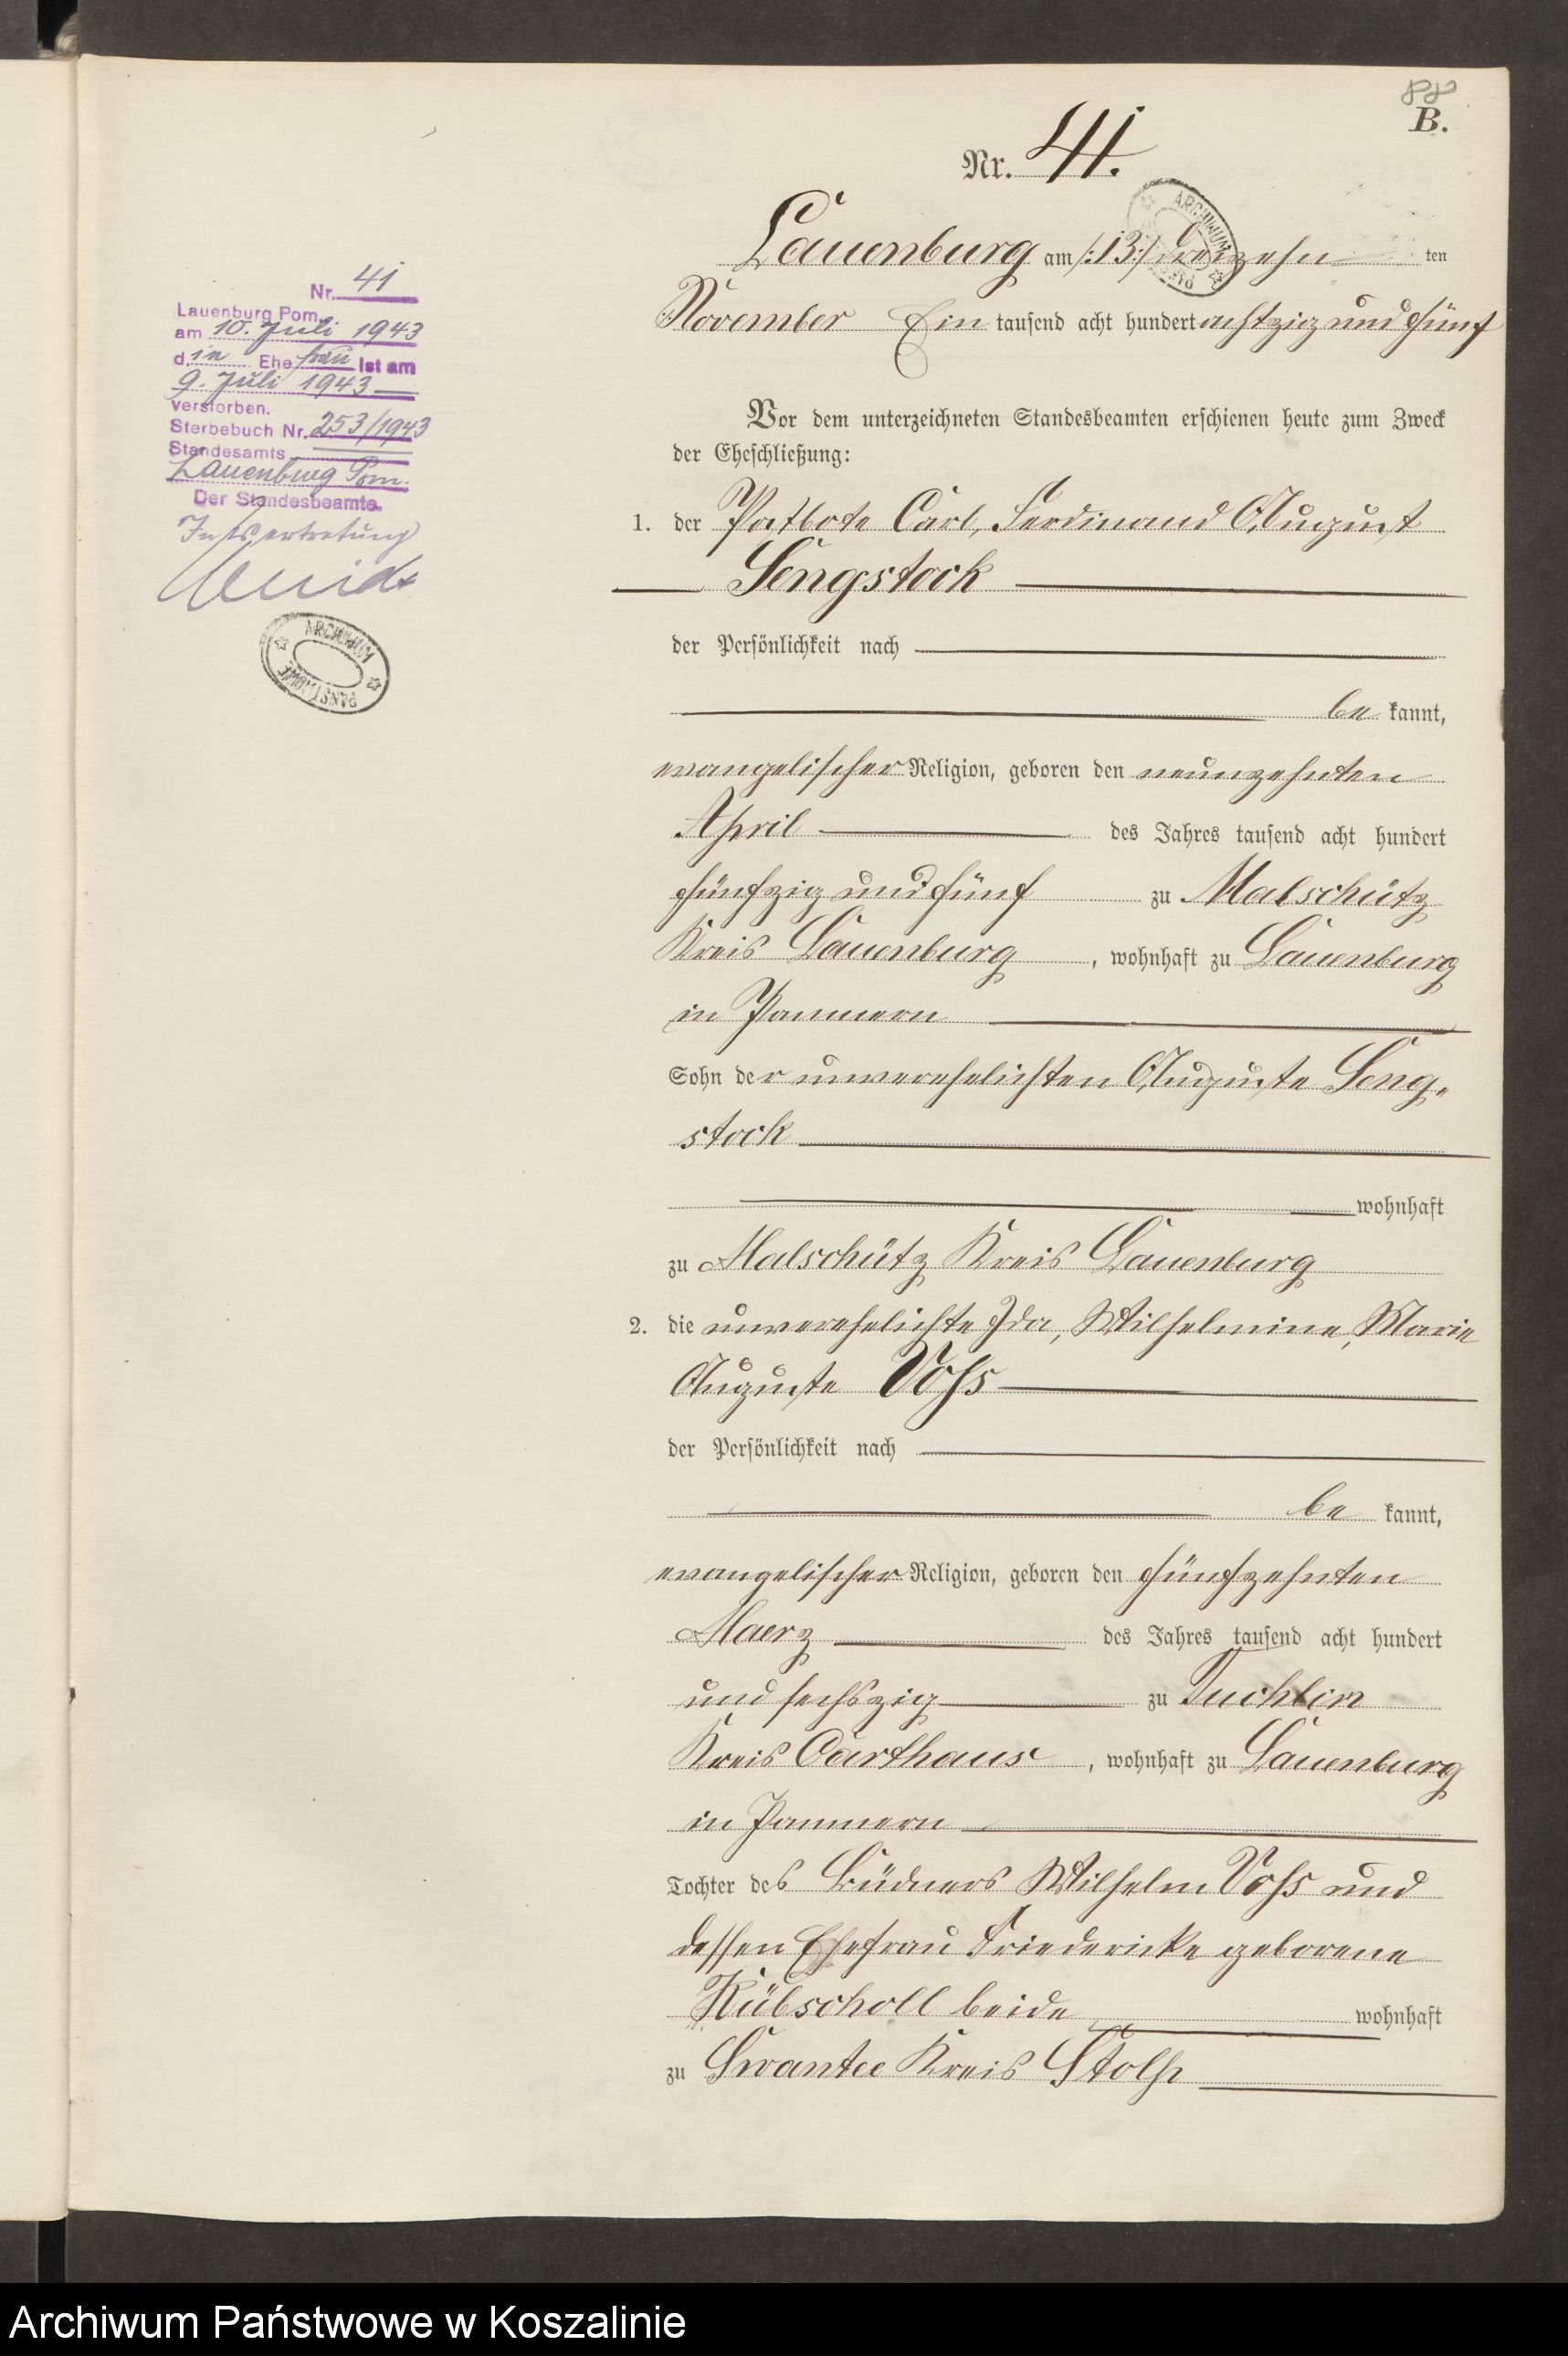 88
B.
Nr. 41.
Lauenburg am /:13:/ dreizehn ten
November Ein tausend acht hundert achtzig und fünf
Vor dem unterzeichneten Standesbeamten erschienen heute zum Zweck
der Eheschließung:
1. der Postbote Carl, Ferdinand August
Sengstock
der Persönlichkeit nach
be kannt,
evangelischer Religion, geboren den neunzehnten
April des Jahres tausend acht hundert
fünfzig und fünf zu Malschütz
Kreis Lauenburg, wohnhaft zu Lauenburg
in Pommern
Sohn der unverehelichten Auguste Seng-
stock
wohnhaft
zu Malschütz Kreis Lauenburg
2. die unverehelichte Ida, Wilhelmine, Marie
Auguste Voss
der Persönlichkeit nach
be kannt,
evangelischer Religion, geboren den fünfzehnten
Maerz des Jahres tausend acht hundert
und sechszig zu Tuchlin
Kreis Carthaus, wohnhaft zu Lauenburg
in Pommern
Tochter des Büdners Wilhelm Voss und
dessen Ehefrau Friedericke geborene
Kübscholl beide wohnhaft
zu Swantee Kreis Stolp
Nr. 41
Lauenburg Pom.
am 10. Juli 1943
d.ie Ehe frau ist am
9. Juli 1943
verstorben.
Sterbebuch Nr. 253/1943
Standesamts
Lauenburg Pom.
Der Standesbeamte.
In Vertretung
ARCHIWUM
PAŃSTWOWE
ARCHIWUM
Archiwum Państwowe w Koszalinie